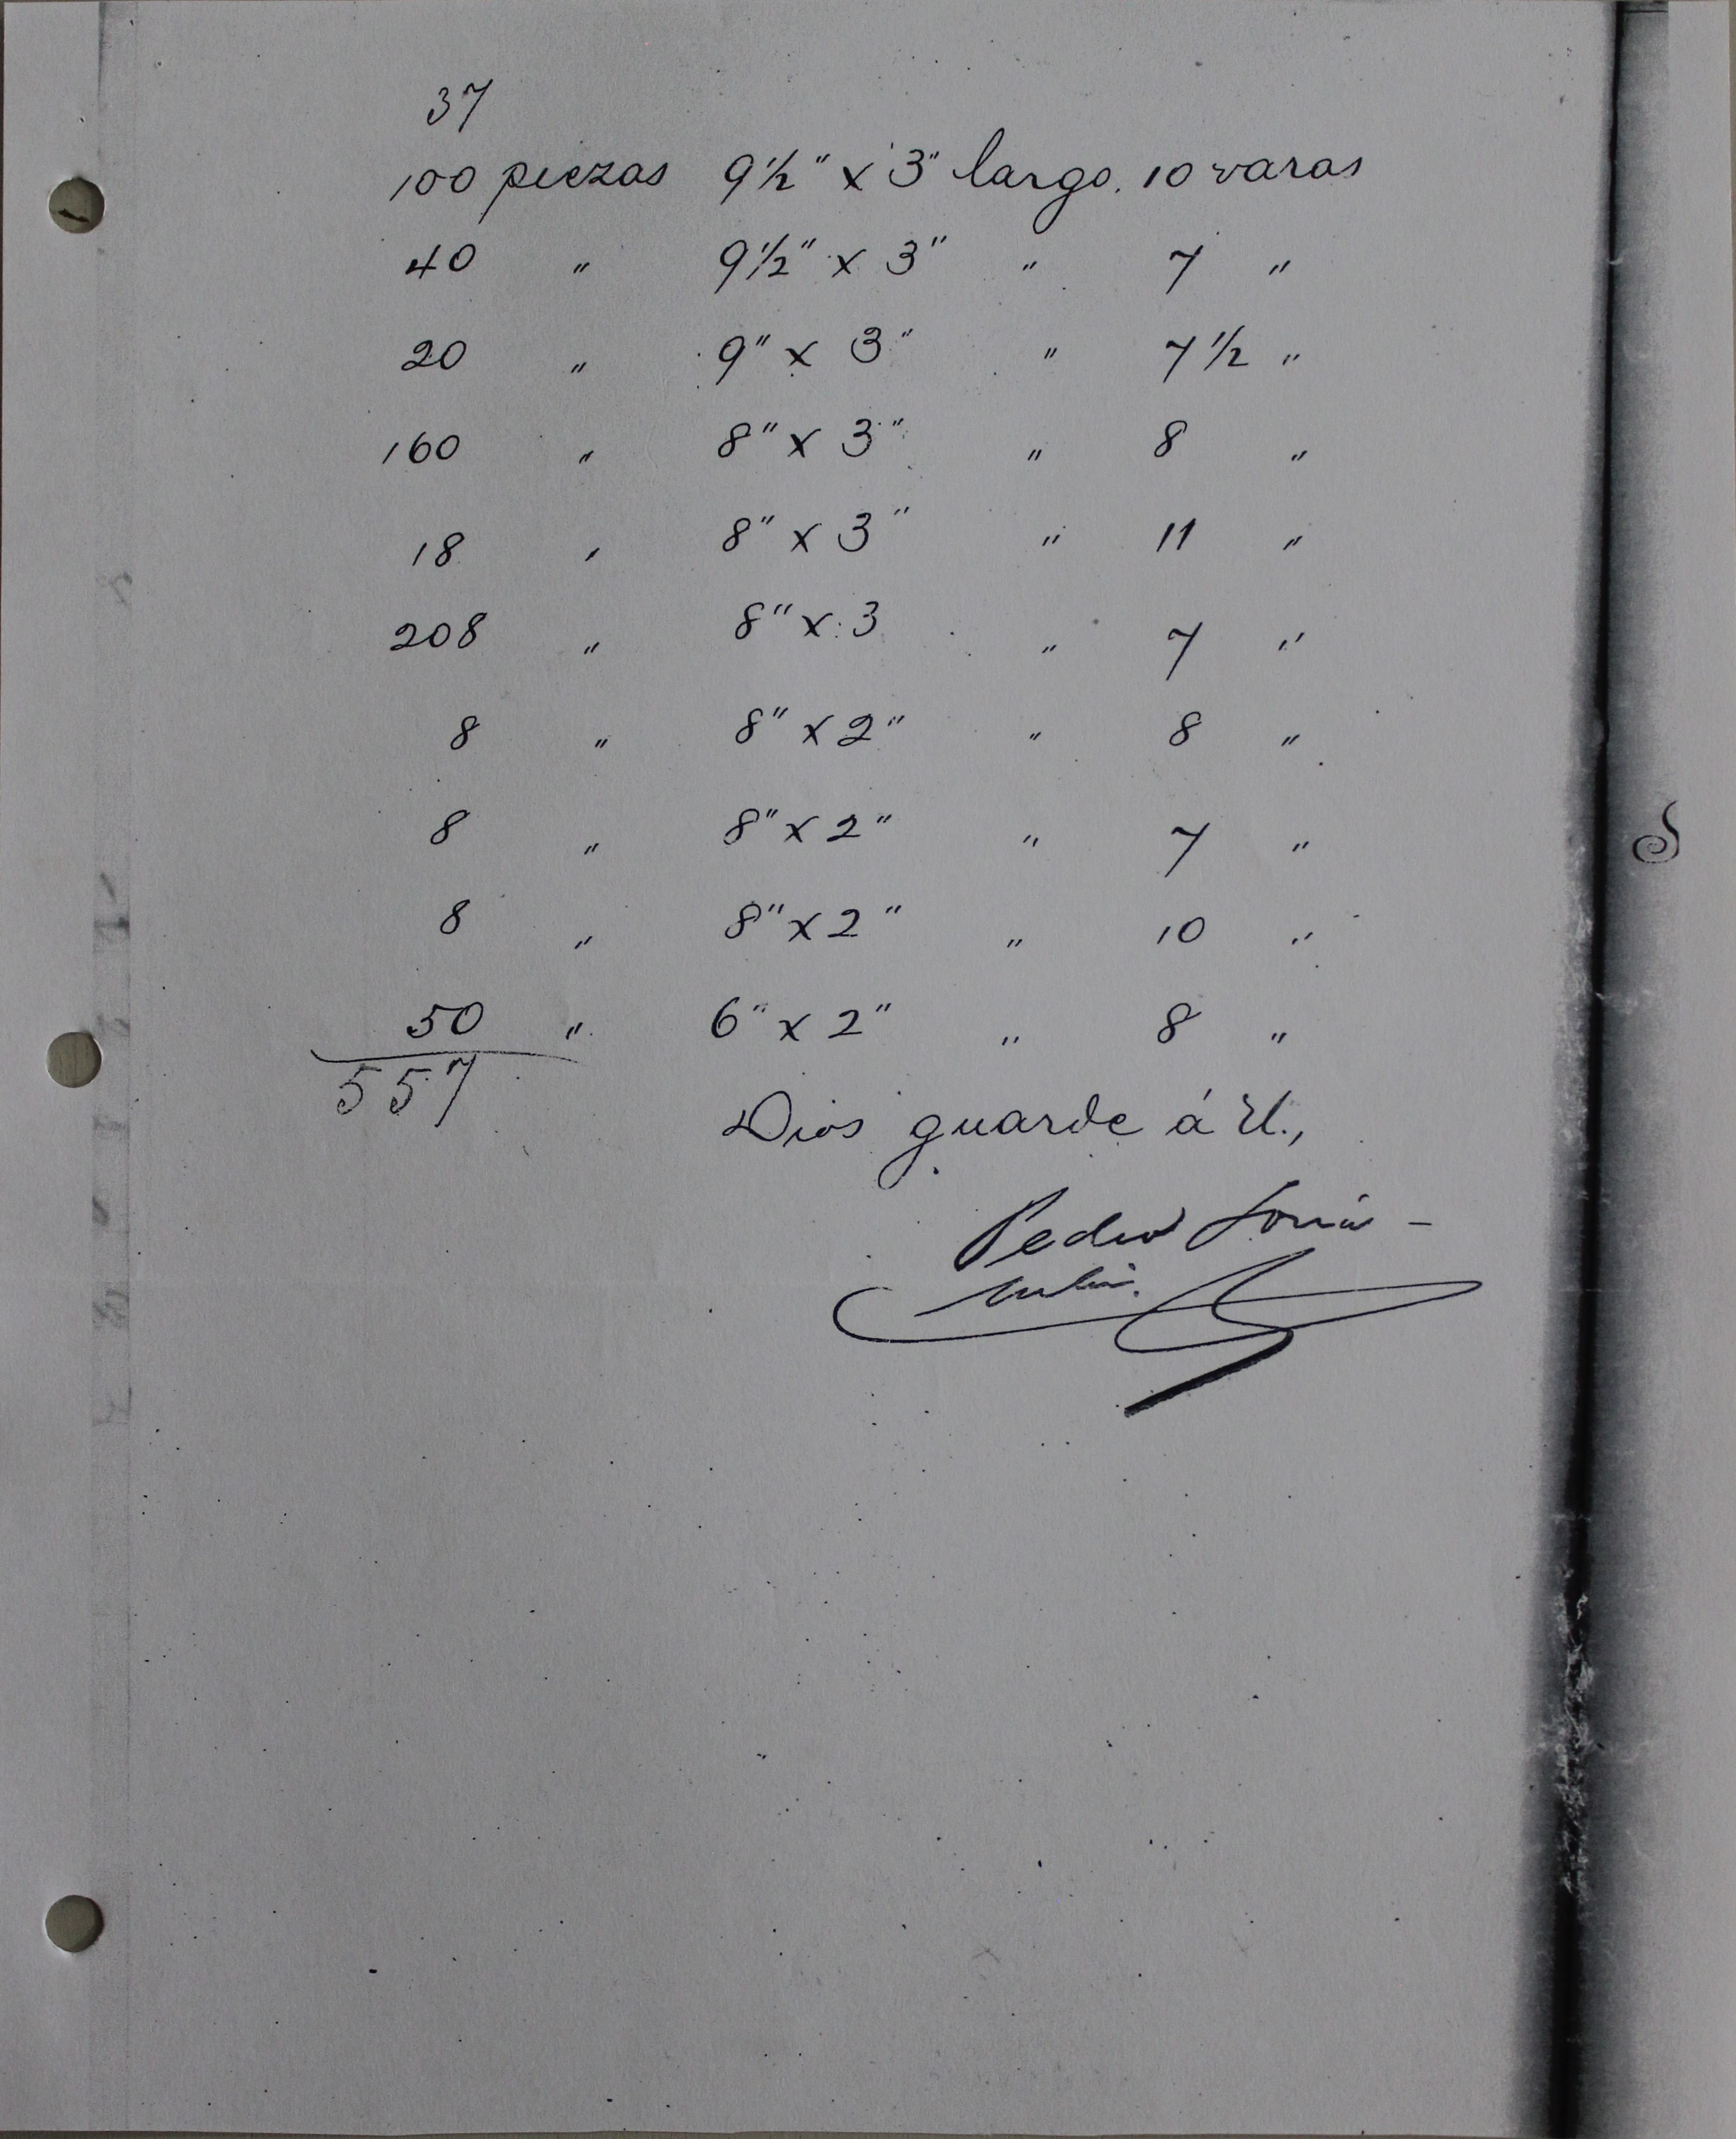 37
100 piezas 9½" x 3" largo. 10 varas
40 " 9½" x 3" " 7 "
20 " 9" x 3" " 7 ½ "
160 " 8" x 3" " 8 "
18 " 8" x 3" " 11 "
208 " 8" x 3 " 7 "
8 " 8" x 2" " 8 "
8 " 8" x 2" " 7 "
8 " 8" x 2" " 10 "
50 " 6" x 2" " 8 "
557
Dios guarde á U.,
Pedro